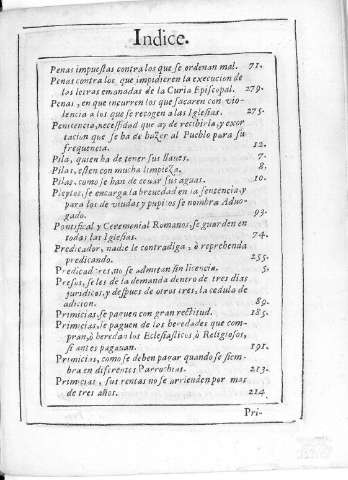 Indice.
Penas impuestas contra los que se ordenan mal. 71.
Penas contra los que impidieren la execucion de
las letras emanadas de la Curia Episcopal. 279.
Penas, en que incurren los que sacaren con vio-
lencia a los que se recogen a las Iglesias. 275.
Penitencia, necessidad que ay de recibirla, y exor
tacion que se ha de hazer al Pueblo para su
frequencia. 12.
Pila, quien ha de tener sus llaves. 7.
Pilas, esten con mucha limpieza. 8.
Pilas, como se han de echar sus aguas. 10.
Pleytos, se encarga la brevedad en la sentencia, y
para los de viudas y pupilos se nombra Advo-
gado. 93.
Pontifical y Ceremonial Romanos, se guarden en
todas las Iglesias. 74.
Predicador, nadie le contradiga, ò reprehenda
predicando. 255.
Predicadores, no se admitan sin licencia. 5.
Presos, se les de la demanda dentro de tres dias
juridicos, y despues de otros tres, la cedula de
adicion. 89.
Primicias, se paguen con gran rectitud. 185.
Primicias, se paguen de las heredades que com-
pran, ò heredan los Eclesiasticos, ò Religiosos,
si antes pagavan. 191.
Primicias, como se deben pagar quando se siem-
bra en diferentes Parrochias. 213.
Primicias, sus rentas no se arrienden por mas
de tres años. 214
Pri-